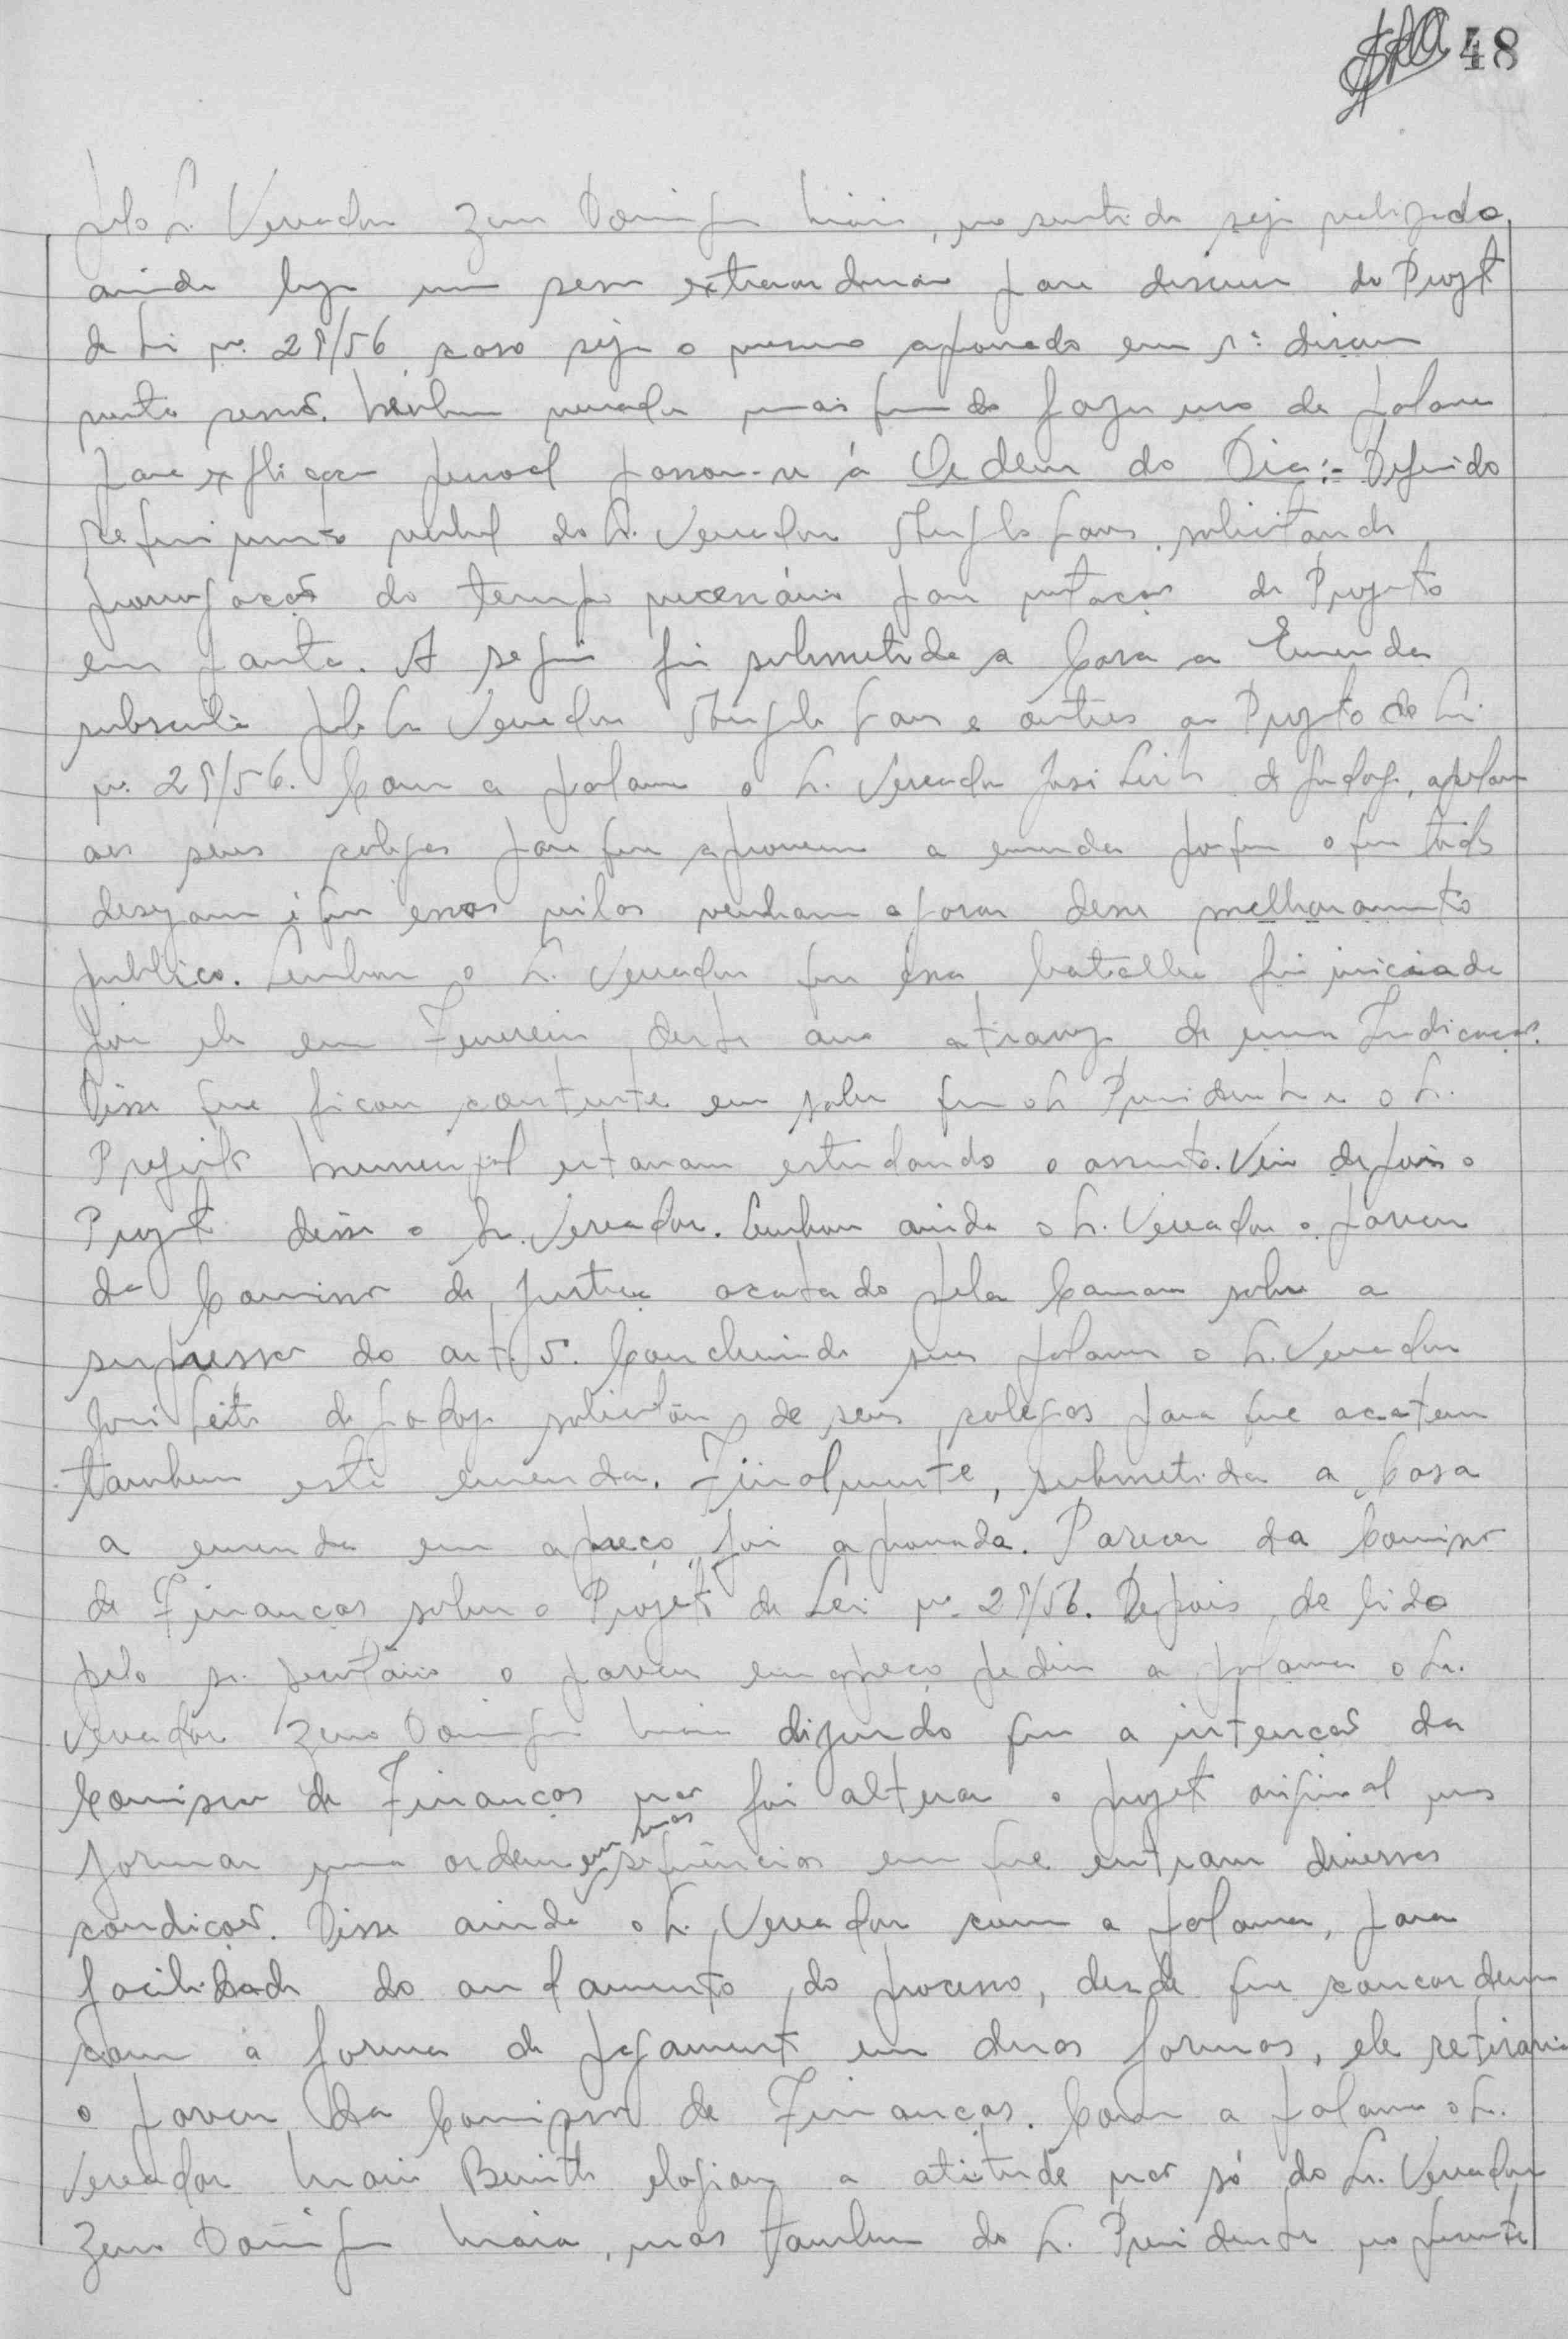 48
pelo Sr. Vereador Zeno Domingues Maia, no sentido seja realizada
ainda hoje uma sessão extraordinaria para discussão do Projeto
de Lei nº 28/56 caso seja o mesmo aprovado em 1ª discussão
nesta sessão. Nenhum vereador mais querendo fazer uso da palavra
para explicação pessoal passou-se á Ordem do Dia:- Deferido
requerimento verbal do Sr. Vereador solicitando
prorrogação do tempo necessário para votação do Projeto
em pauta. A seguir foi submetida a Casa a Emenda
subscrita pelo Sr Vereador e outros ao Projeto de Lei
nº 28/56. Com a palavra o Sr. Vereador José Leite de Godoy, apelou
aos seus colegas para que aprovem a emenda porque o que todos
desejam é que essas vilas venham a gosar desse melhoramento
publico. Lembrou o Sr. Vereador que essa batalha foi iniciada
por ele em Fevereiro deste ano atravez de uma Indicação.
Disse que ficou contente em saber que o Sr Presidente e o Sr.
Prefeito Municipal estavam estudando o assunto. Veio depois o
Projeto disse o Sr. Vereador. Lembrou ainda o Sr. Vereador o parecer
da Comissão de Justiça acatado pela Camara sobre a
supressão do art. 5. Concluindo suas palavras o Sr. Vereador
José Leite de Godoy solicitou de seus colegas para que acatem
tambem esta emenda. Finalmente, submetida a Casa
a emenda em apreço foi aprovada. Parecer da Comissão
de Finanças sobre o Projeto de Lei nº 28/56. Depois de lido
pelo sr. secretário o parecer em apreço pediu a palavra o Sr.
Vereador Zeno Domingues Maia dizendo que a intenção da
Comissão de Finanças não foi alterar o projeto original mas
formar uma ordem em suas sequências em que entram diversas
condições. Disse ainda o Sr. Vereador com a palavra, para
facilidade do andamento do processo, desde que concordem
com a forma de pagamento em duas formas, ele retiraria
o parecer da Comissão de Finanças. Com a palavra o Sr.
Vereador Mario Benith elogiou a atitude não só do Sr. Vereador
Zeno Domingues Maia, mas tambem do Sr. Presidente